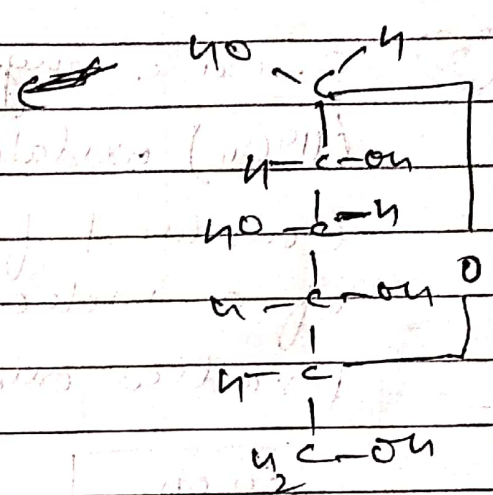 HO H
C
H-C-OH
HO-C-H
O
H-C-OH
H-C
H2C-OH